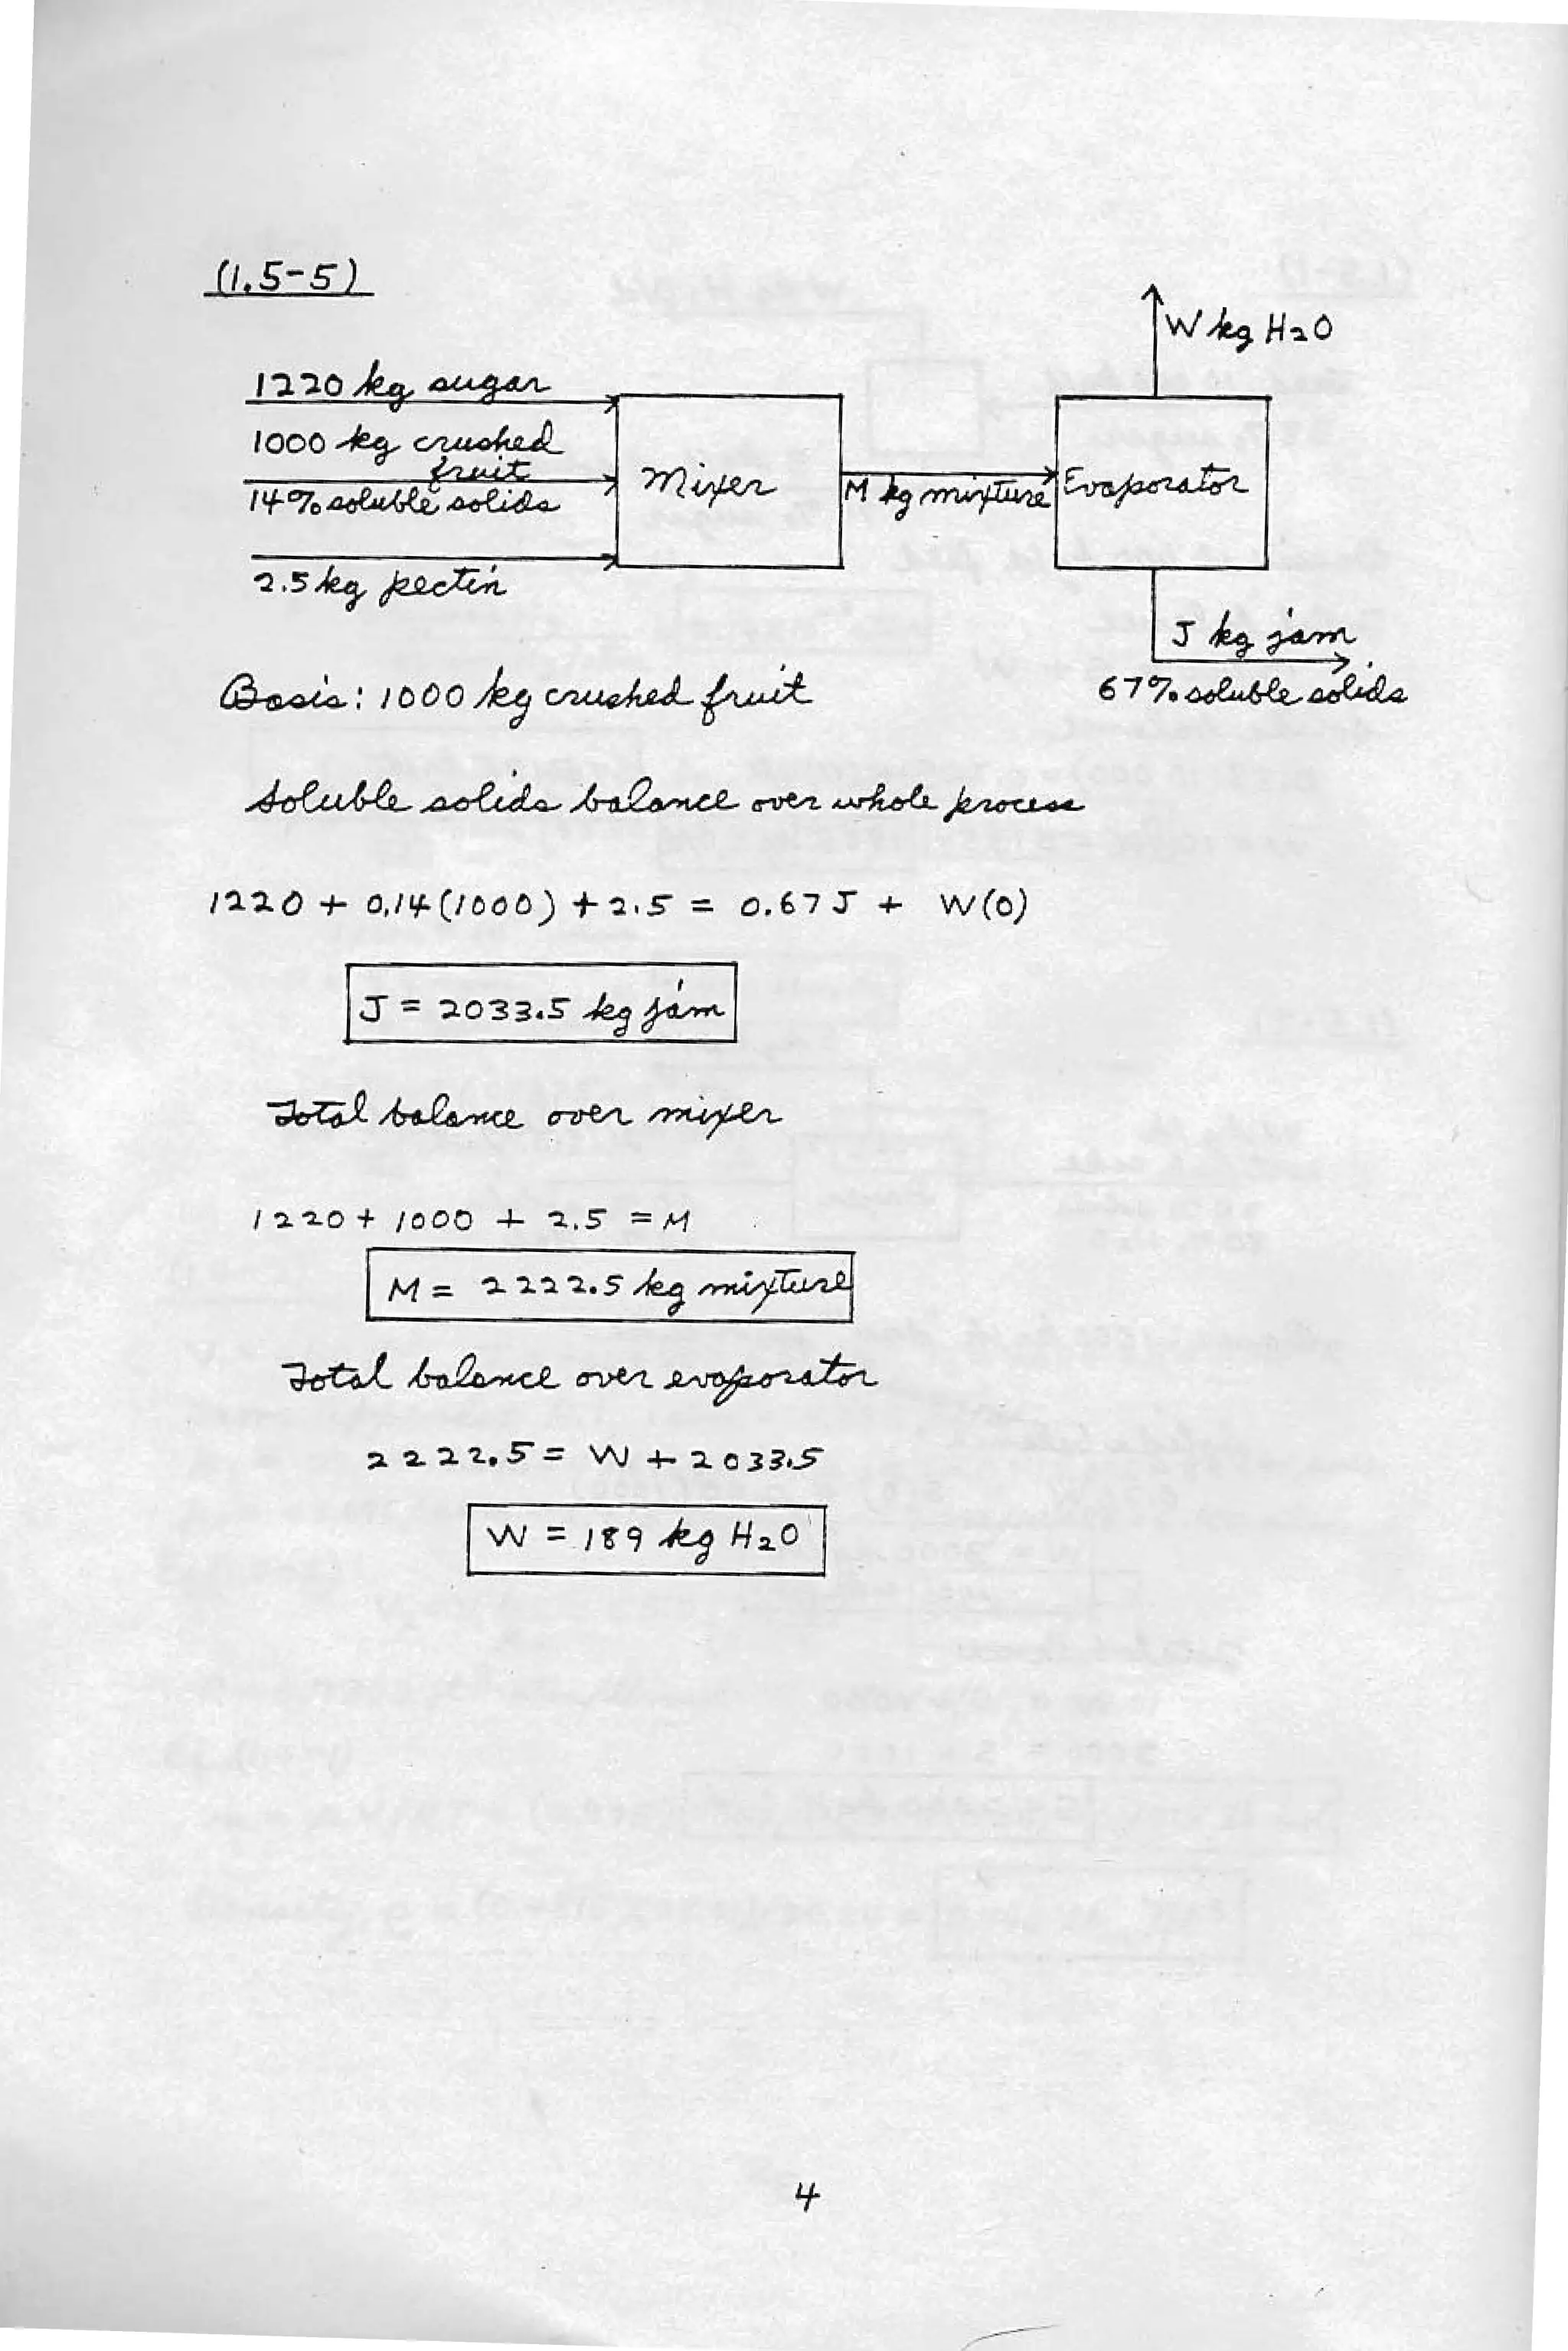 (1.5-5)
W kg H2O
1220 kg sugar
1000 kg crushed
fruit
14% soluble solids
2.5 kg pectin
Mixer
M kg mixture
Evaporator
J kg jam
67% soluble solids
Basis: 1000 kg crushed fruit
Soluble solids balance over whole process
1220 + 0.14(1000) + 2.5 = 0.67 J + W(0)
J = 2033.5 kg jam
Total balance over mixer
1220 + 1000 + 2.5 = M
M = 2222.5 kg mixture
Total balance over evaporator
2222.5 = W + 2033.5
W = 189 kg H2O
4